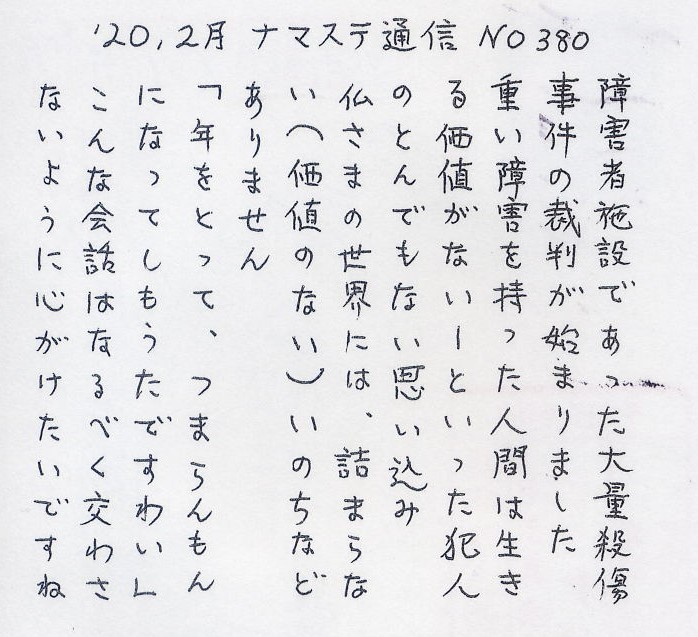 '20,2月 ナマステ通信 NO380
障害者施設であった大量殺傷
事件の裁判が始まりました
重い障害を持った人間は生き
る価値がないーといった犯人
のとんでもない思い込み
仏さまの世界には、詰まらな
い(価値のない)いのちなど
ありません
「年をとって、つまらんもん
になってしもうたですわい」
こんな会話はなるべく交わさ
ないように心がけたいですね